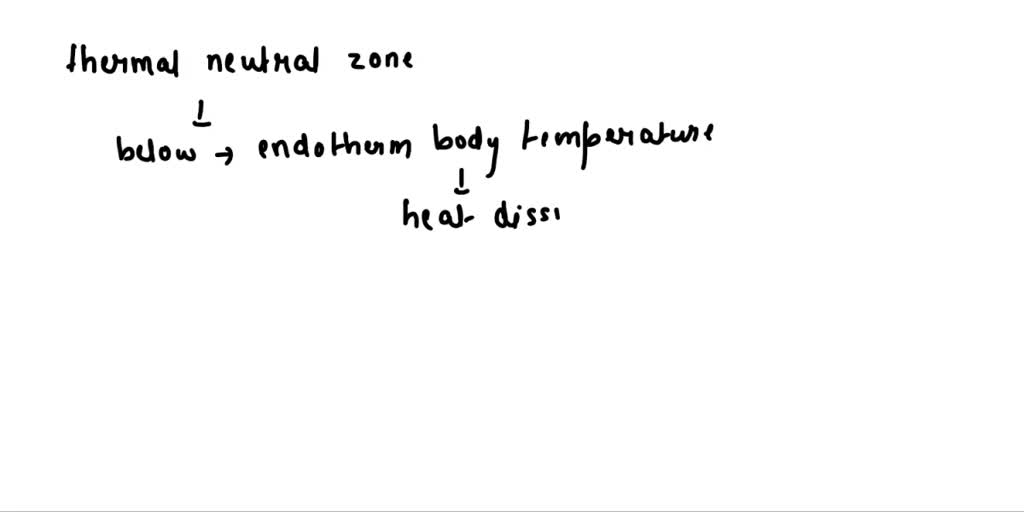 thermal neutral zone
below → endotherm body temperature
heat dissi